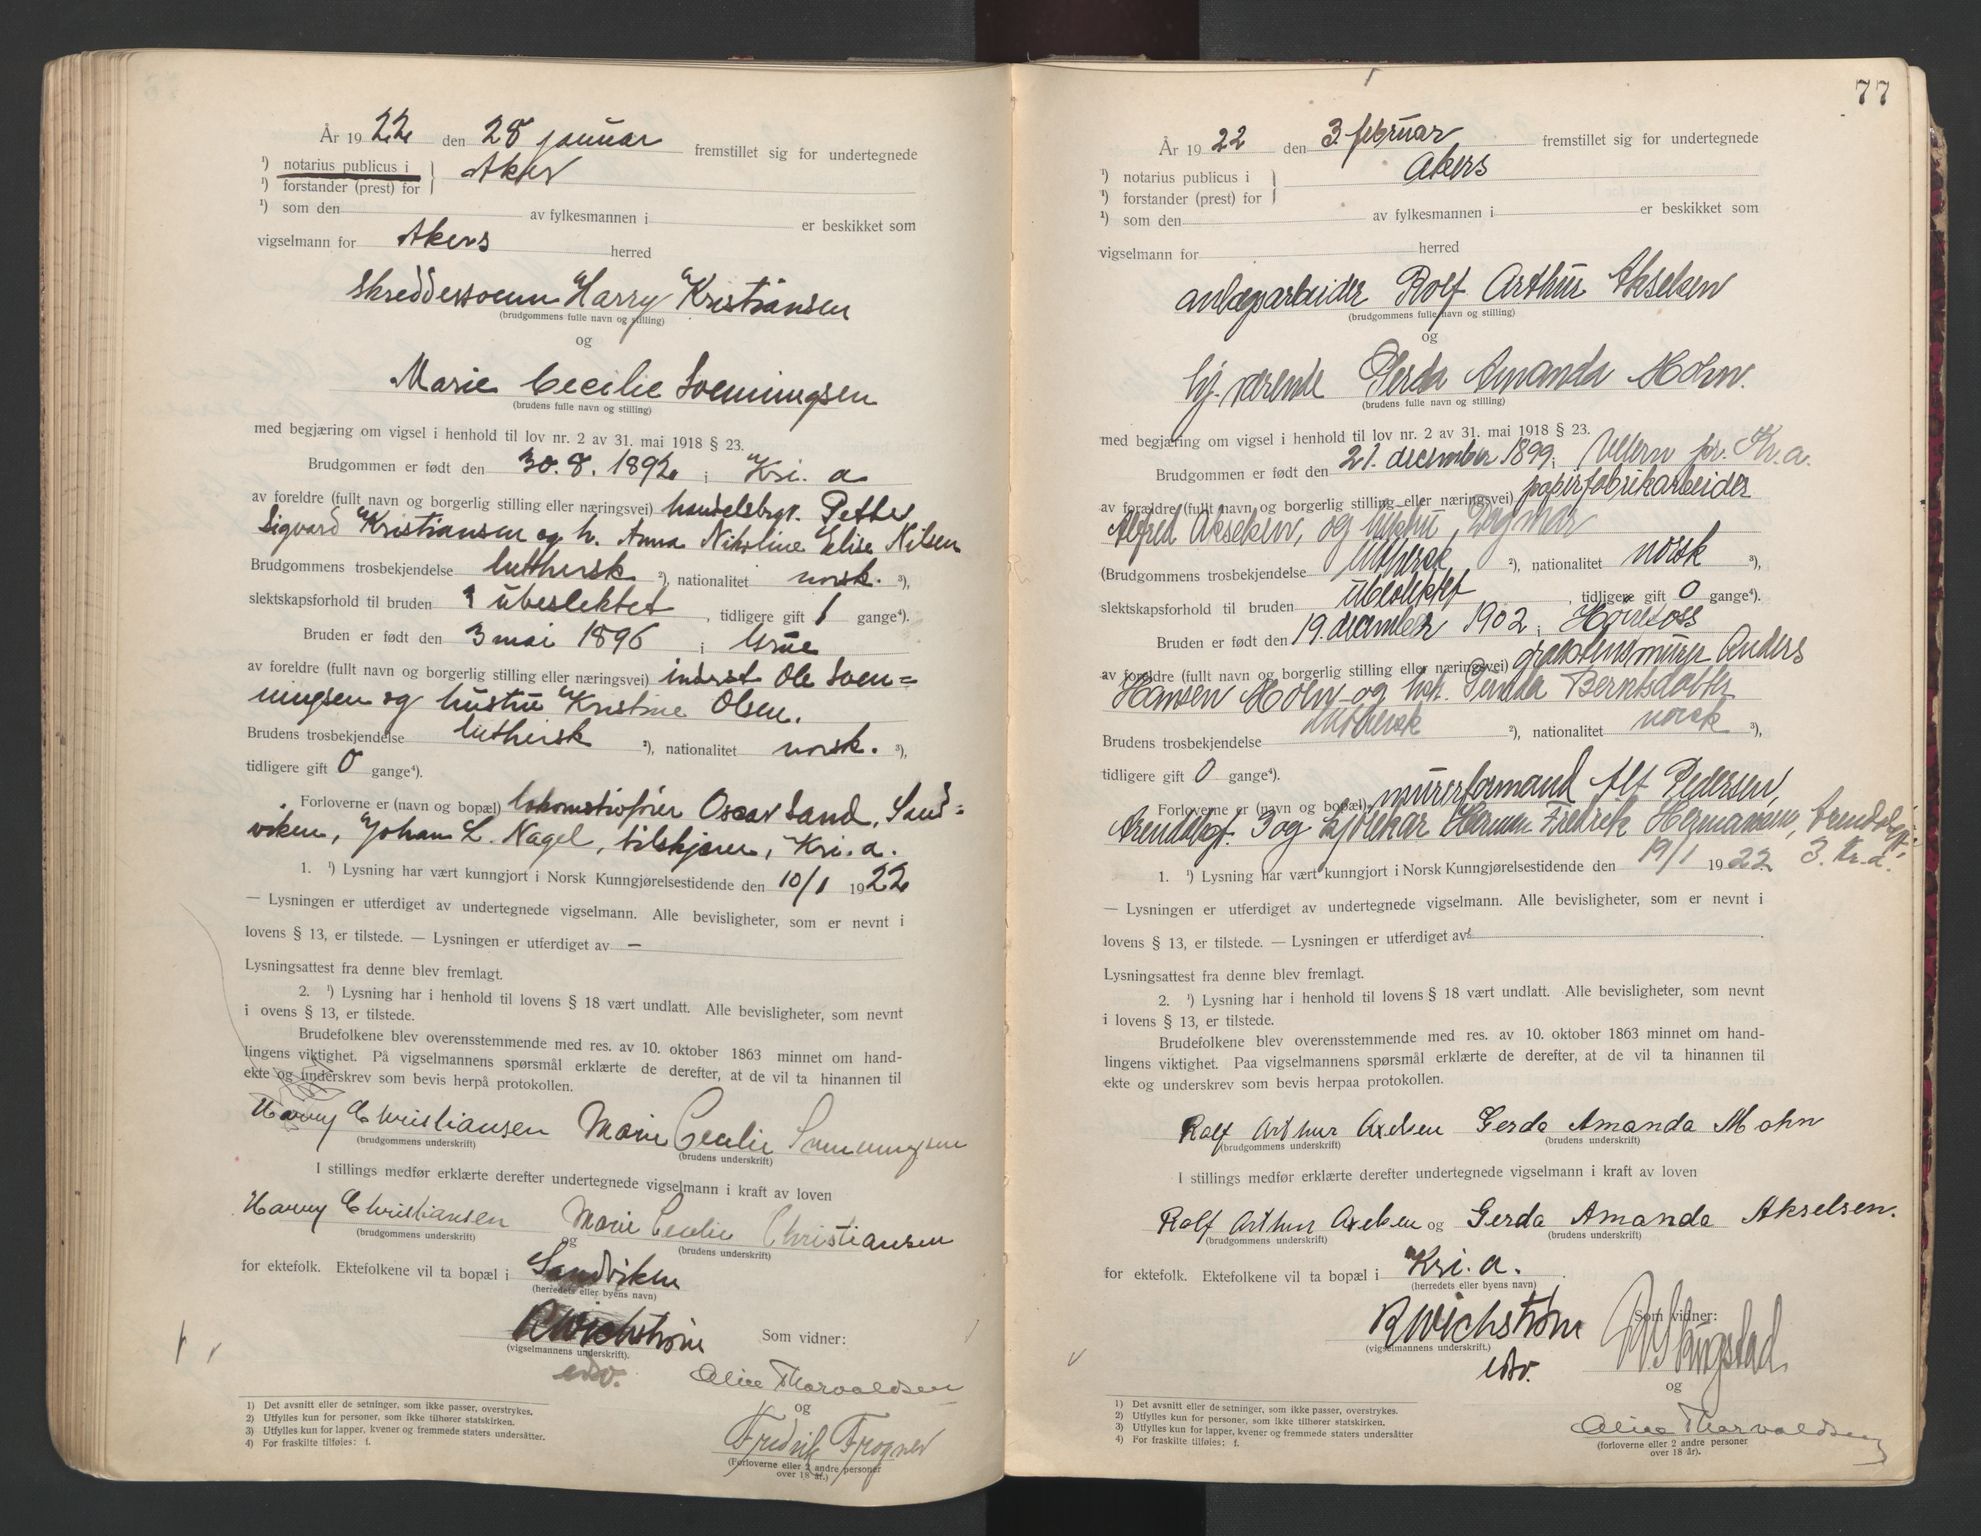 År 1922 den 28 januar fremstillet sig for undertegnede
¹) notarius publicus i } Aker
¹) forstander (prest) for
¹) som den av fylkesmannen i er beskikket som
vigselmann for Akers herred
Skreddersvenn Harry Kristiansen
(brudgommens fulle navn og stilling)
og
Marie Cecilie Svenningsen
(brudens fulle navn og stilling)
med begjæring om vigsel i henhold til lov nr. 2 av 31. mai 1918 § 23.
Brudgommen er født den 30.8.1892 i Kri.a
av foreldre (fullt navn og borgerlig stilling eller næringsvei) handelsbgt. Petter
Sigvard Kristiansen og h. Anna Nikoline Elise Nilsen
Brudgommens trosbekjendelse luthersk ²), nationalitet norsk. ³),
slektskapsforhold til bruden ubeslektet, tidligere gift 1 gange⁴).
Bruden er født den 3 mai 1896 i Grue
av foreldre (fullt navn og borgerlig stilling eller næringsvei) inderst Ole Sven=
ningsen og hustru Kristine Olsen.
Brudens trosbekjendelse luthersk ²), nationalitet norsk. ³),
tidligere gift 0 gange⁴).
Forloverne er (navn og bopæl) Oscar Sand, Sand=
viken, Johan L. Nagel, Kri.a.
1. ¹) Lysning har vært kunngjort i Norsk Kunngjørelsestidende den 10/1 1922
— Lysningen er utferdiget av undertegnede vigselmann. Alle bevisligheter, som er nevnt i
lovens § 13, er tilstede. — Lysningen er utferdiget av —
Lysningsattest fra denne blev fremlagt.
2. ¹) Lysning har i henhold til lovens § 18 vært undlatt. Alle bevisligheter, som nevnt
i ovens § 13, er tilstede.
Brudefolkene blev overensstemmende med res. av 10. oktober 1863 minnet om hand-
lingens viktighet. På vigselmannens spørsmål erklærte de derefter, at de vil ta hinannen til
ekte og underskrev som bevis herpå protokollen.
Harry Christiansen Marie Cecilie Svenningsen
(brudgommens underskrift) (brudens underskrift)
I stillings medfør erklærte derefter undertegnede vigselmann i kraft av loven
Harry Christiansen og Marie Cecilie Christiansen
(brudgommens underskrift) (brudens underskrift)
for ektefolk. Ektefolkene vil ta bopæl i Sandviken
(herredets eller byens navn)
R Wichstrøm Som vidner:
(vigselmannens underskrift).
edv. Alice Thorvaldsen
og
Fredrik Frogner
(Forloverne eller 2 andre personer
over 18 år.)
1) Det avsnitt eller de setninger, som ikke passer, overstrykes.
2) Utfylles kun for personer, som ikke tilhører statskirken.
3) Utfylles kun for lapper, kvener og fremmede staters undersåtter.
4) For fraskilte tilføies: f.
77
År 1922 den 3. februar fremstillet sig for undertegnede
¹) notarius publicus i } Akers
¹) forstander (prest) for
¹) som den av fylkesmannen i er beskikket som
vigselmann for herred
anlægsarbeider Rolf Arthur Akselsen
(brudgommens fulle navn og stilling)
og
hj. værende Gerda Amanda Mohn.
(brudens fulle navn og stilling)
med begjæring om vigsel i henhold til lov nr. 2 av 31. mai 1918 § 23.
Brudgommen er født den 21. december 1899 i Ullern pr. Kr.a.
av forældre (fullt navn og borgerlig stilling eller næringsvei) papirfabrikarbeider
Alfred Akselsen, og hustru, Dagmar
(Brudgommens trosbekjendelse luthersk ²), nationalitet norsk ³),
slektskapsforhold til bruden ubeslektet, tidligere gift 0 gange⁴).
Bruden er født den 19. december 1902 i
av foreldre (fullt navn og borgerlig stilling eller næringsvei) Anders
Hansen Mohn og hst. Berntsdatter
Brudens trosbekjendelse luthersk ²), nationalitet norsk ³),
tidligere gift 0 gange⁴).
Forloverne er (navn og bopæl) murerformand Alf Pedersen,
Arendalsgt. 3 og Herman Fredrik Hermansen, Arendalsgt.
3. Kr.a.
1. ¹) Lysning har vært kunngjort i Norsk Kunngjørelsestidende den 19/1 1922
— Lysningen er utferdiget av undertegnede vigselmann. Alle bevisligheter, som er nevnt i
lovens § 13, er tilstede. — Lysningen er utferdiget av
Lysningsattest fra denne blev fremlagt.
2. ¹) Lysning har i henhold til lovens § 18 vært undlatt. Alle bevisligheter, som nevnt
i lovens § 13, er tilstede.
Brudefolkene blev overensstemmende med res. av 10. oktober 1863 minnet om hand-
lingens viktighet. Paa vigselmannens spørsmål erklærte de derefter, at de vil ta hinannen til
ekte og underskrev som bevis herpaa protokollen.
Rolf Arthur Axelsen Gerda Amanda Mohn
(brudgommens underskrift) (brudens underskrift)
I stillings medfør erklærte derefter undertegnede vigselmann i kraft av loven
Rolf Arthur Axelsen og Gerda Amanda Akselsen.
(brudgommens underskrift) (brudens underskrift)
for ektefolk. Ektefolkene vil ta bopæl i Kri.a.
(herredets eller byens navn)
R Wichstrøm Som vidner:
(vigselmannens underskrift.)
edv.
og
Alice Thorvaldsen
(forloverne eller 2 andre personer
over 18 år).
1) Det avsnitt eller de setninger, som ikke passer, overstrykes.
2) Utfylles kun for personer, som ikke tilhører statskirken.
3) Utfylles kun for lapper, kvener og fremmede staters undersåtter
4) For fraskilte tilføies: f.